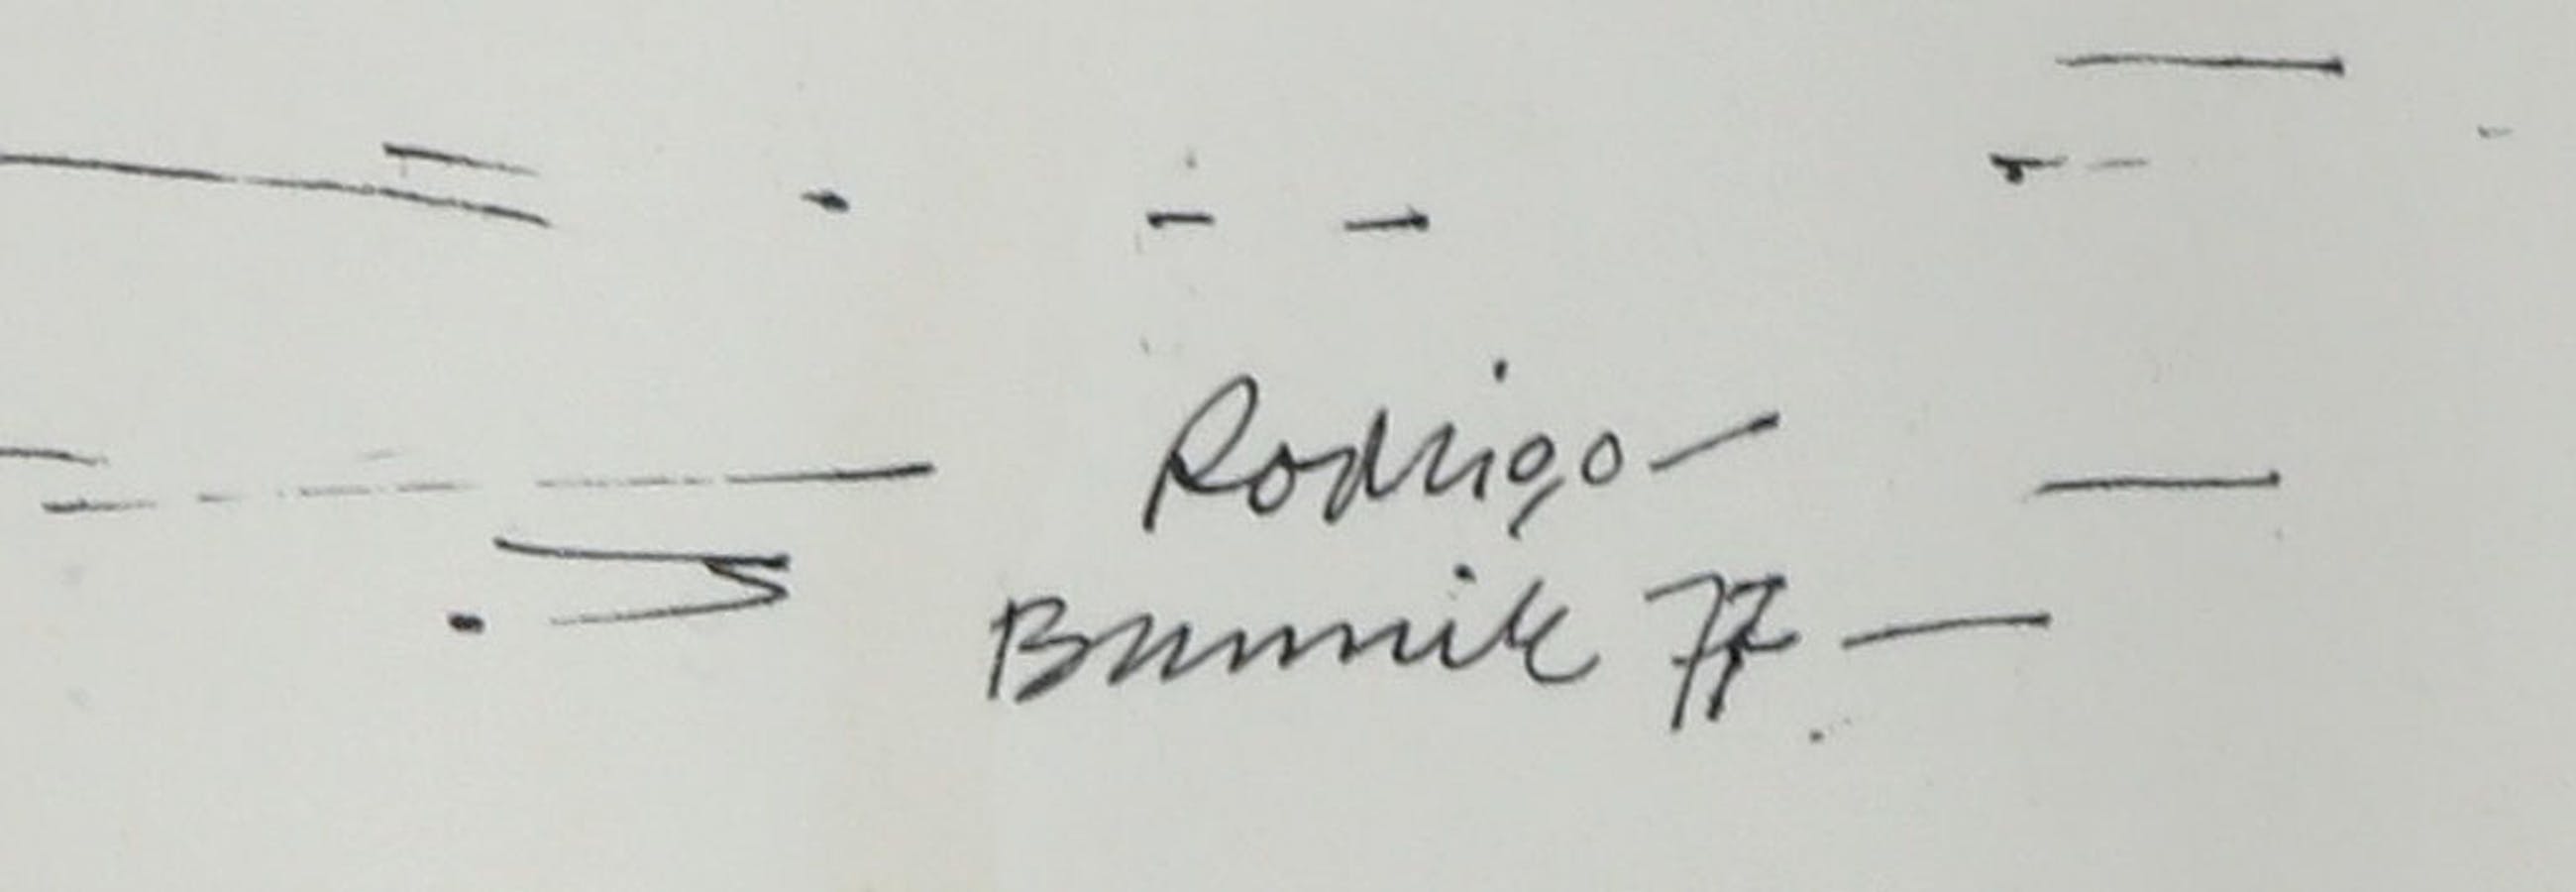 Rodrigo
Bunnik 77